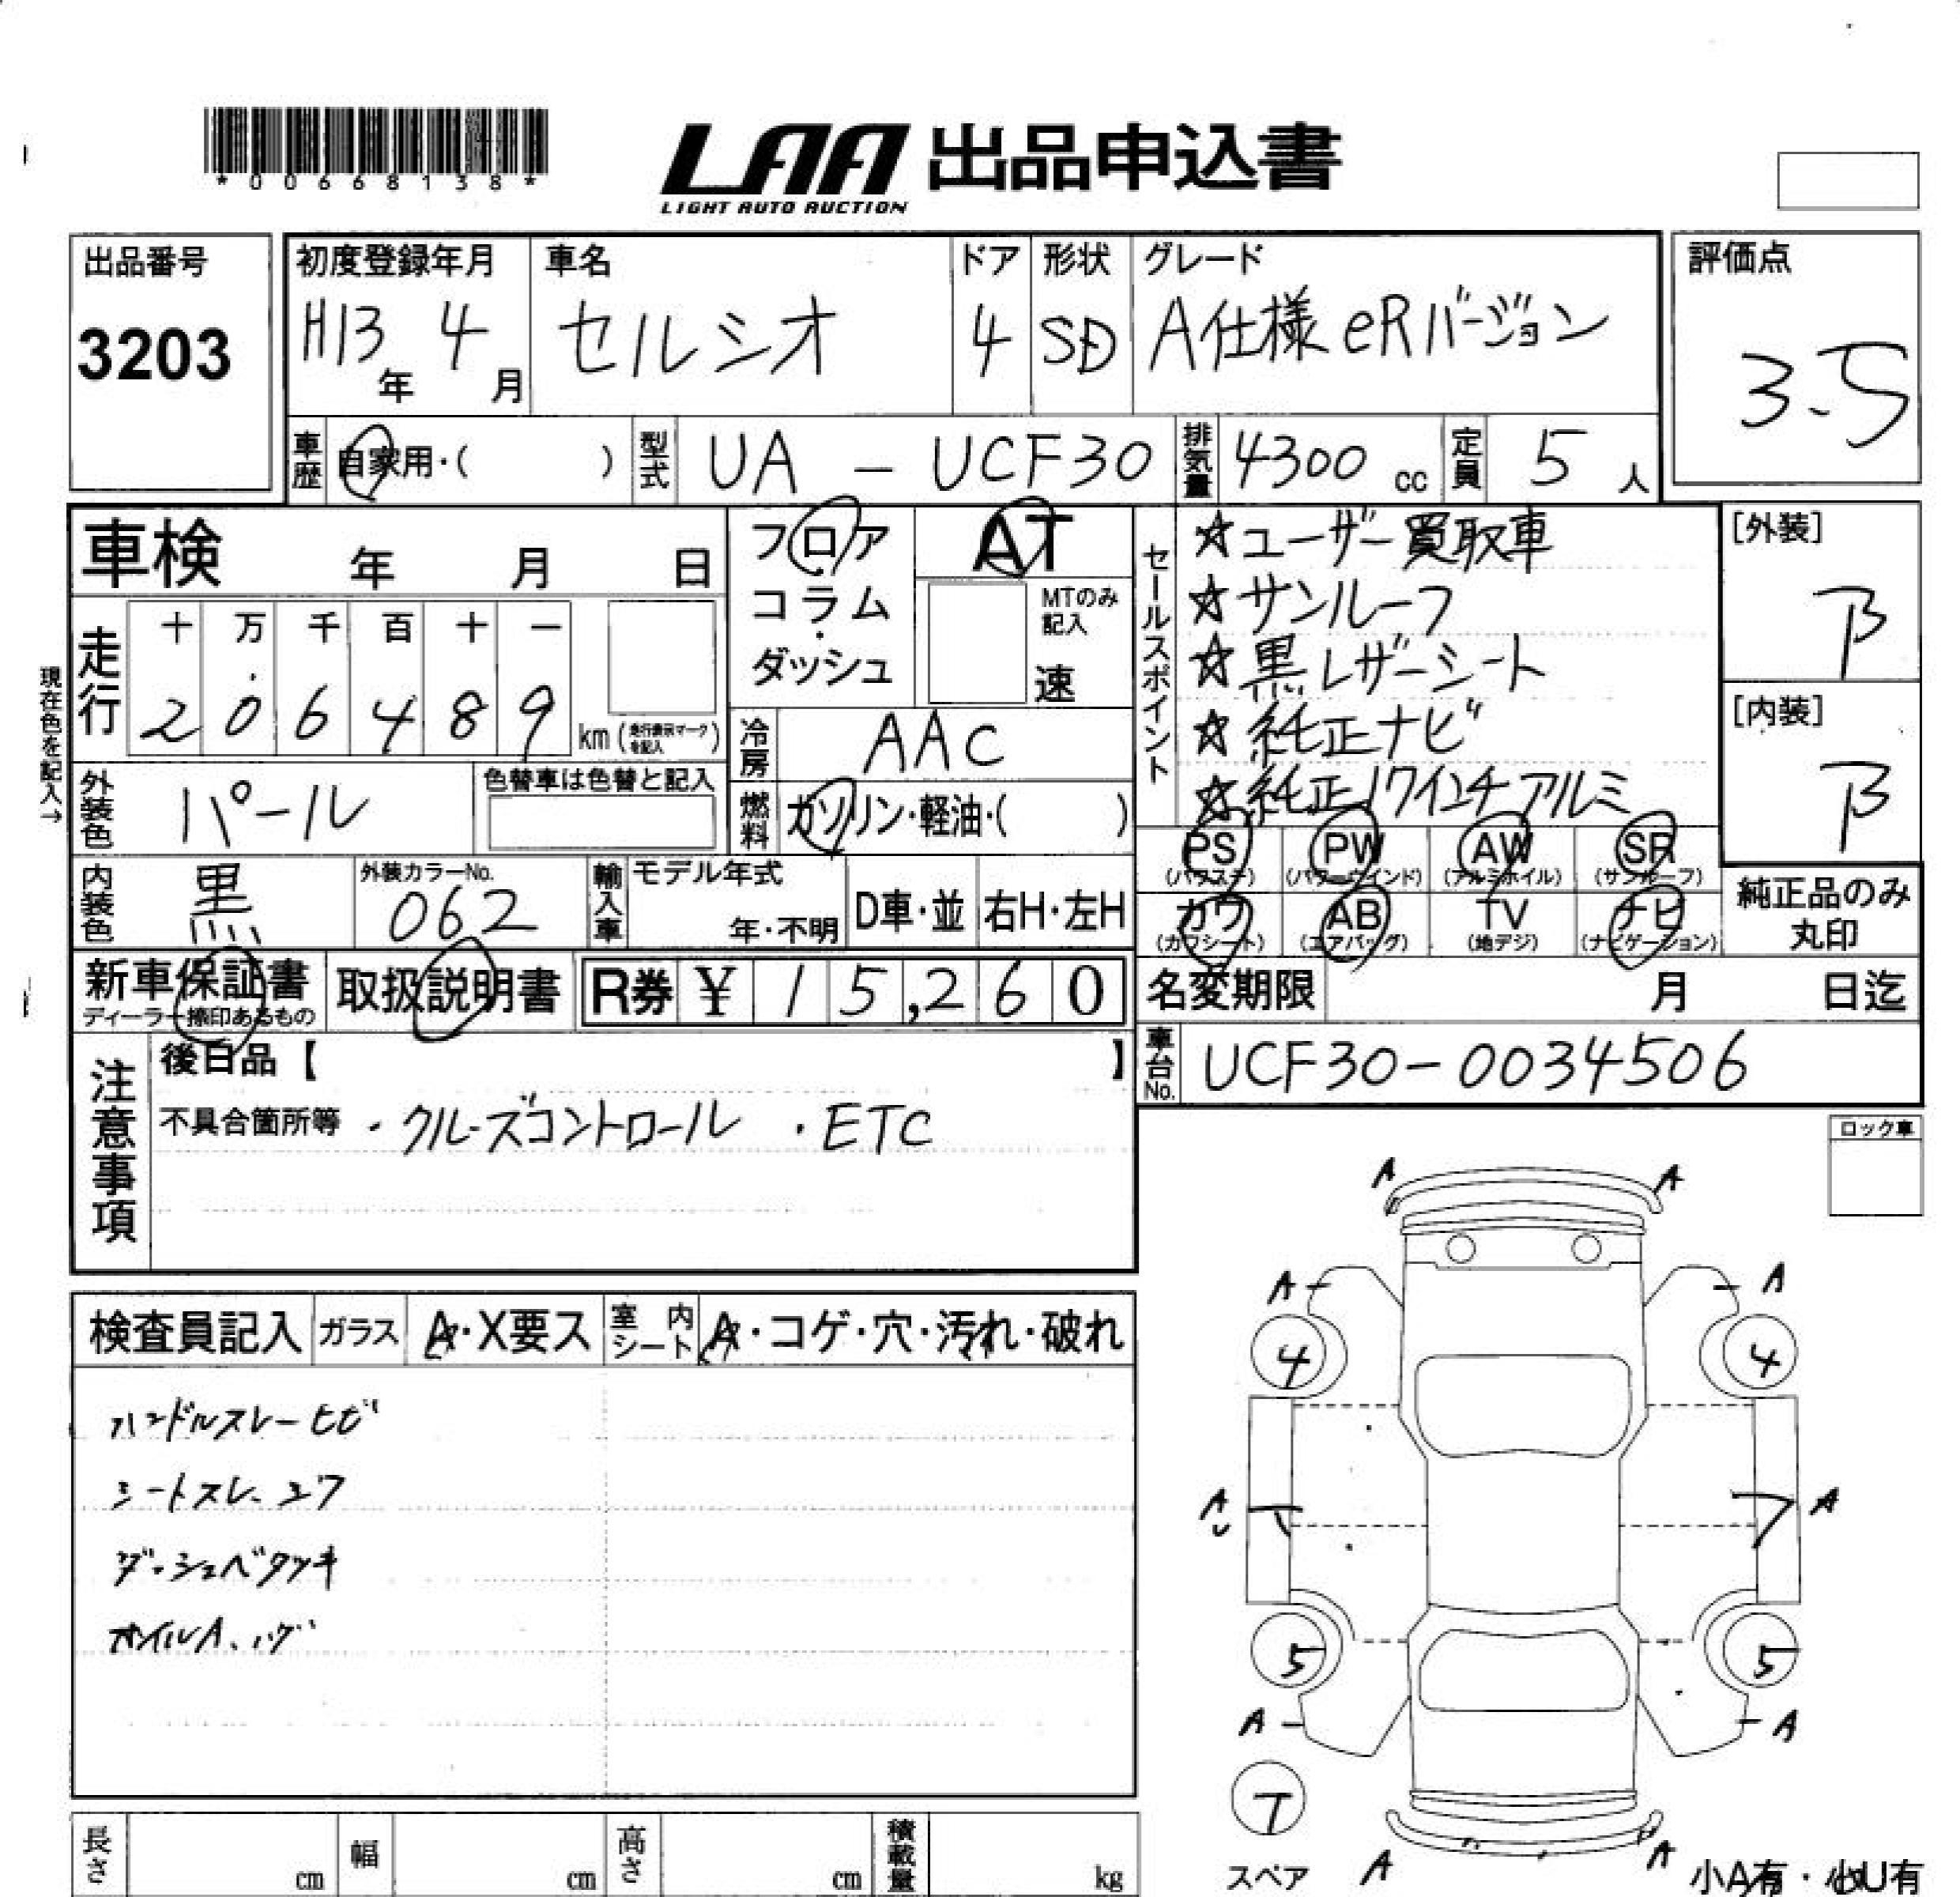 *00668138*
LAA 出品申込書
LIGHT AUTO AUCTION
出品番号
3203
初度登録年月
H13年 4月
車名
セルシオ
ドア
4
形状
SD
グレード
A仕様 eRバージョン
評価点
3.5
車歴
自家用・( )
型式
UA - UCF30
排気量
4300 cc
定員
5 人
車検 年 月 日
フロア
コラム
・
ダッシュ
AT
MTのみ
記入
速
セールスポイント
☆ユーザー買取車
☆サンルーフ
☆黒レザーシート
☆純正ナビ
☆純正17インチアルミ
[外装]
B
[内装]
B
現在色を記入→
走行
十 万 千 百 十 一
2 0 6 4 8 9
km(走行表示マークを記入)
冷房
AAC
外装色
パール
色替車は色替と記入
燃料
ガソリン・軽油・( )
PS
(パワステ)
PW
(パワーウインド)
AW
(アルミホイル)
SR
(サンルーフ)
カワ
(カワシート)
AB
(エアバッグ)
TV
(地デジ)
ナビ
(ナビゲーション)
純正品のみ
丸印
内装色
黒
外装カラーNo.
062
輸入車
モデル年式
年・不明
D車・並
右H・左H
新車保証書
ディーラー捺印あるもの
取扱説明書
R券 ¥ 15,260
名変期限 月 日迄
車台No.
UCF30-0034506
注意事項
後日品【 】
不具合箇所等 ・クルーズコントロール ・ETC
ロック車
検査員記入
ガラス
A・X要ス
室内シート
A・コゲ・穴・汚れ・破れ
ハンドルスレーヒビ
シートスレ、
ダッシュベタツキ
A A
A A
4 4
A A
5 5
A A
T
スペア
A A
小A有・小U有
長さ cm
幅 cm
高さ cm
積載量 kg